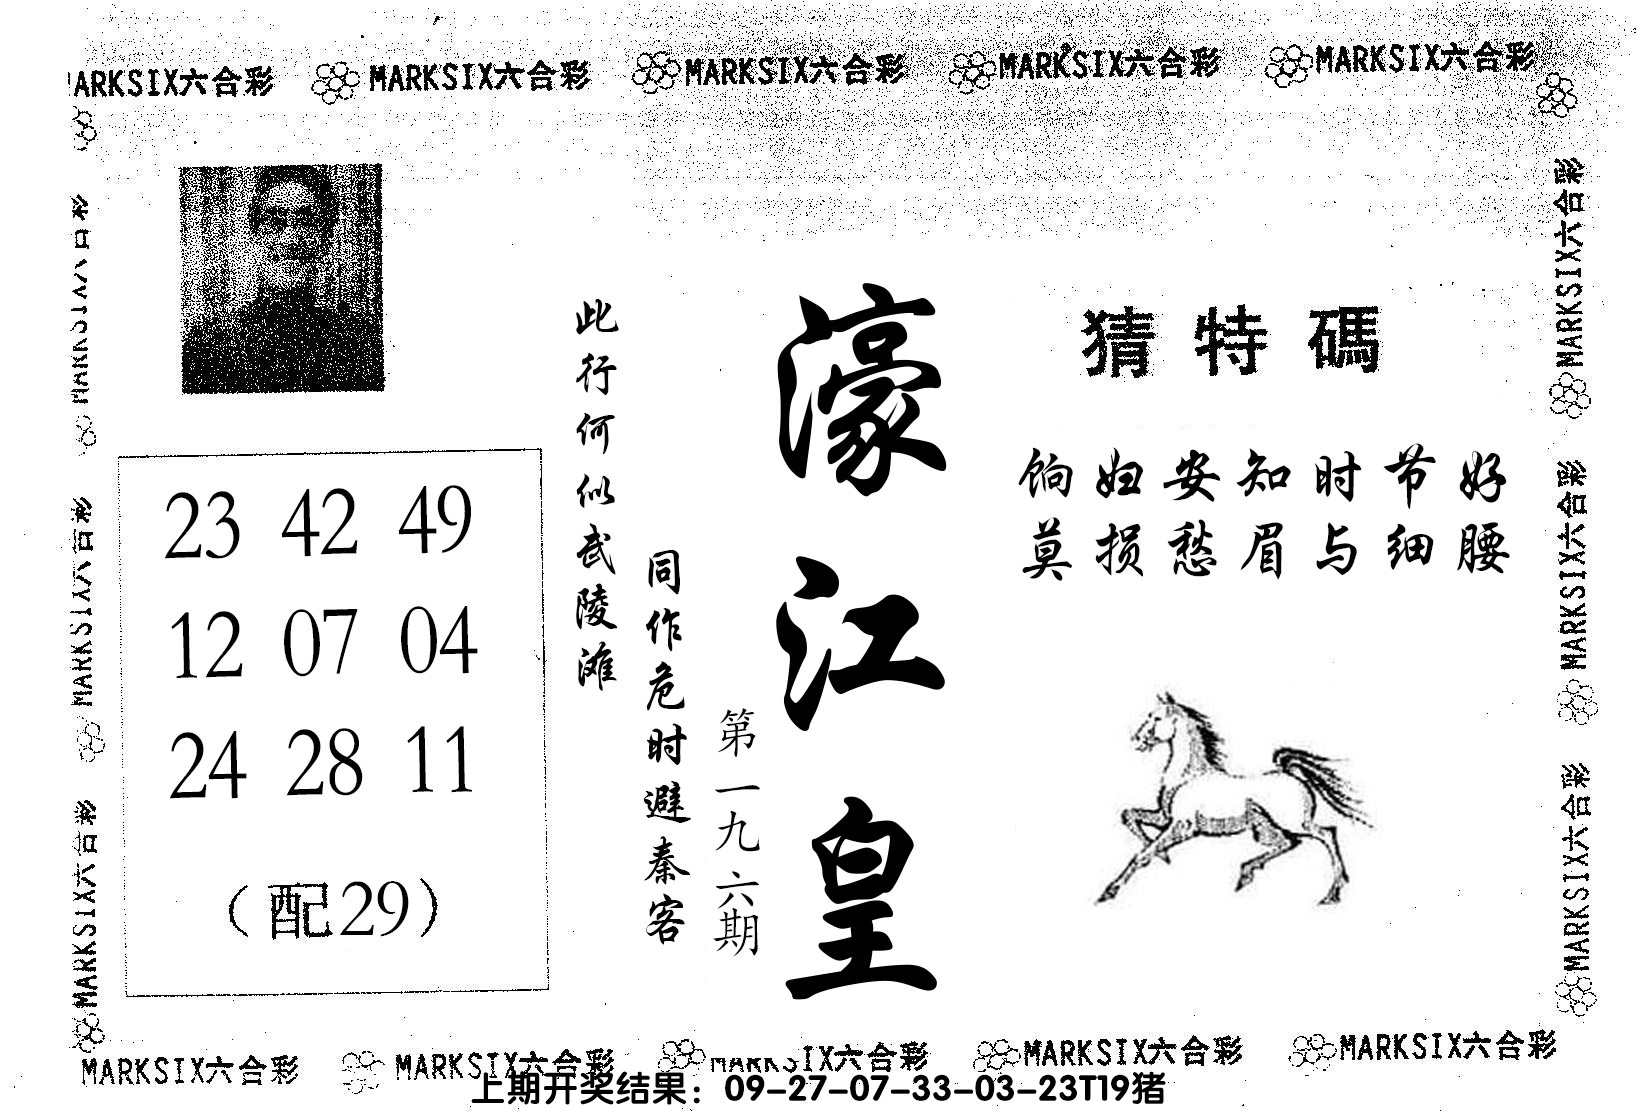 MARKSIX六合彩 MARKSIX六合彩 MARKSIX六合彩 MARKSIX六合彩 MARKSIX六合彩
MARKSIX六合彩
MARKSIX六合彩
MARKSIX六合彩
23 42 49
12 07 04
24 28 11
(配29)
此行何似武陵滩
同作危时避秦客
第一九六期
濠江皇
猜特碼
饷妇安知时节好
莫损愁眉与细腰
MARKSIX六合彩
MARKSIX六合彩
MARKSIX六合彩
MARKSIX六合彩 MARKSIX六合彩 MARKSIX六合彩 MARKSIX六合彩 MARKSIX六合彩
上期开奖结果：09-27-07-33-03-23T19猪